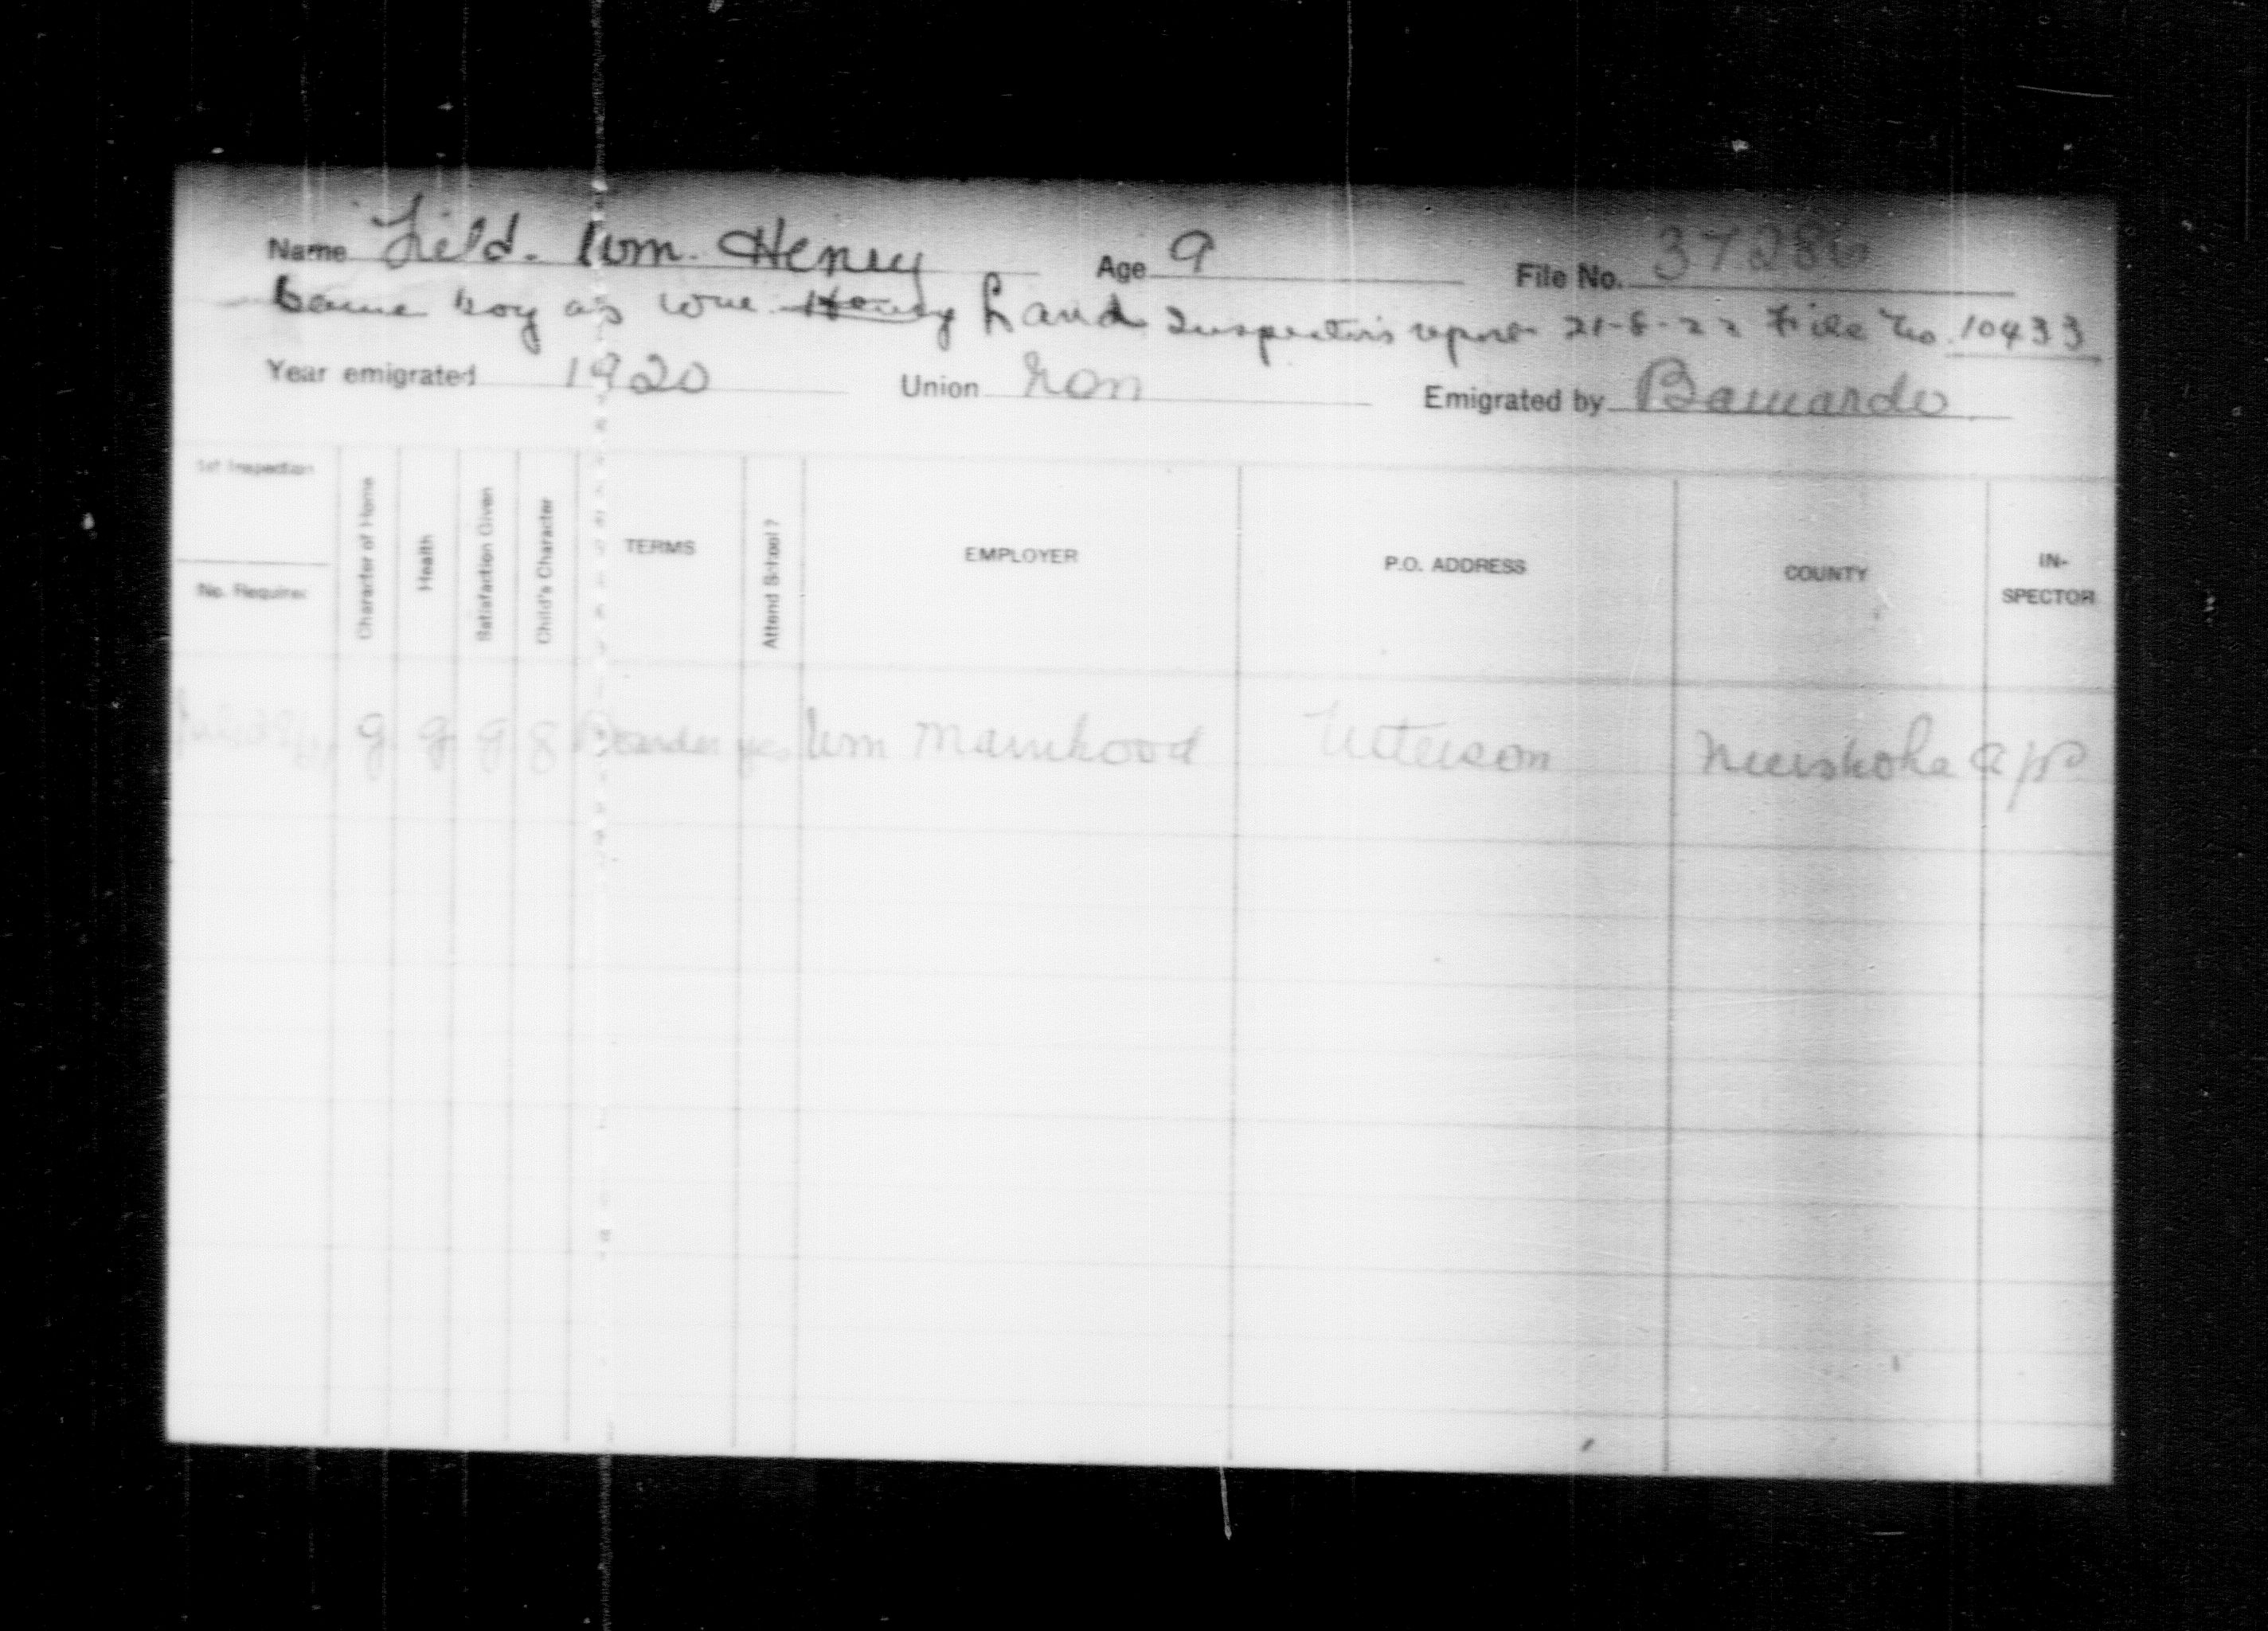 Name Field. Wm. Henry Age 9 File No. 37286
Same boy as Wm. Henry Land Inspector's report 21-8-22 File No. 10433
Year emigrated 1920 Union Non Emigrated by Barnardo
1st Inspection
No. Required
Character of Home
Health
Satisfaction Given
Child's Character
TERMS
Attend School?
EMPLOYER
P.O. ADDRESS
COUNTY
IN-
SPECTOR
g g g g Boarder yes Wm Marnhood Utterson Muskoka